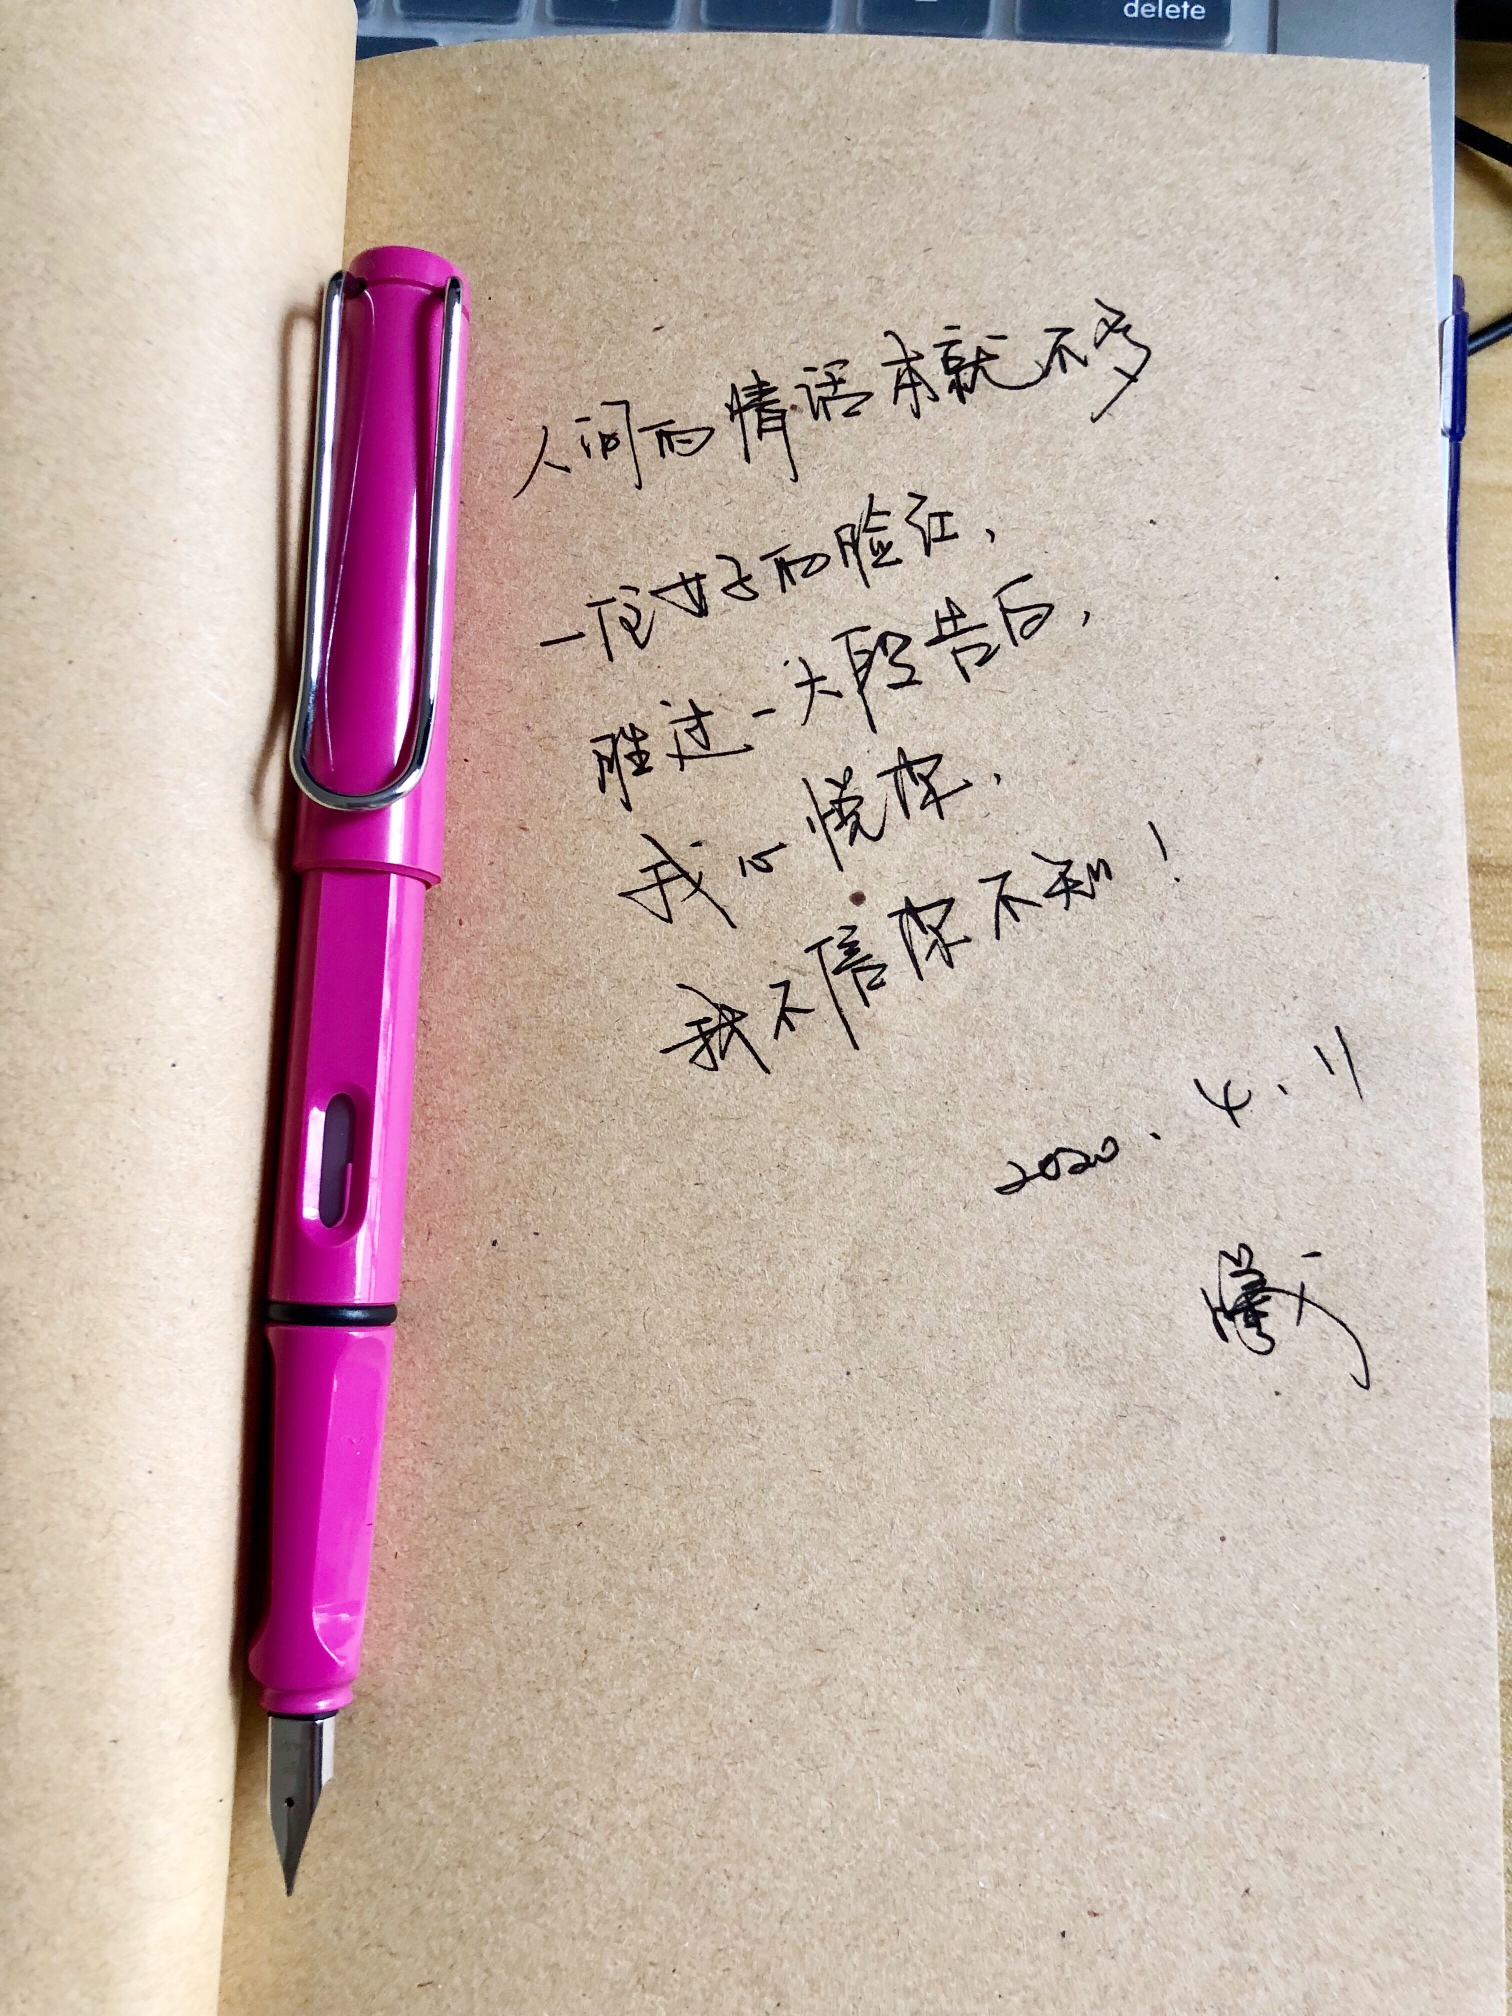 delete
人间的情话本就不多
一位女子的脸红、
胜过一大段告白，
我心悦你、
我不信你不知！
2020.4.11